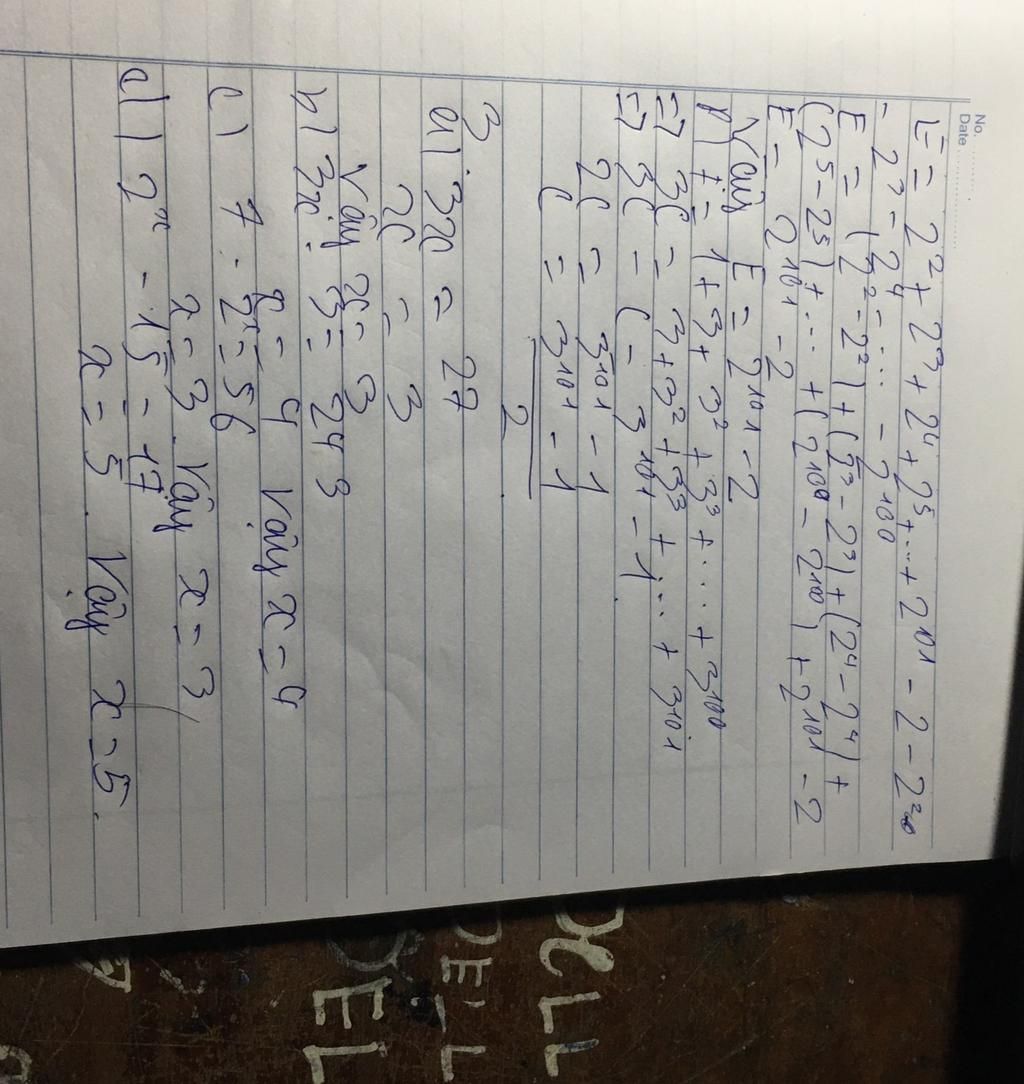 No.
Date
E = 2² + 2³ + 2⁴ + 2⁵ + ... + 2¹⁰¹ - 2 - 2²
- 2³ - 2⁴ = ... - 2¹⁰⁰
E = (2² - 2²) + (2³ - 2³) + (2⁴ - 2⁴) +
(2⁵ - 2⁵) + ... + (2¹⁰⁰ - 2¹⁰⁰) + 2¹⁰¹ - 2
E = 2¹⁰¹ - 2
Vậy E = 2¹⁰¹ - 2
= 1 + 3 + 3² + 3³ + ... + 3¹⁰⁰
=> 3C = 3 + 3² + 3³ + ... + 3¹⁰¹
=> 3C - C = 3¹⁰¹ - 1
2C = 3¹⁰¹ - 1
C = 3¹⁰¹ - 1
2
3.
a) 3x = 27
x = 3
Vậy x = 3
b) 3x. 3 = 243
x = 4 Vậy x = 4
c) 7 . 2ˣ = 56
x = 3 Vậy x = 3
d) 2ˣ - 15 = 17
x = 5. Vậy x = 5.
DELL
DELL
DEL